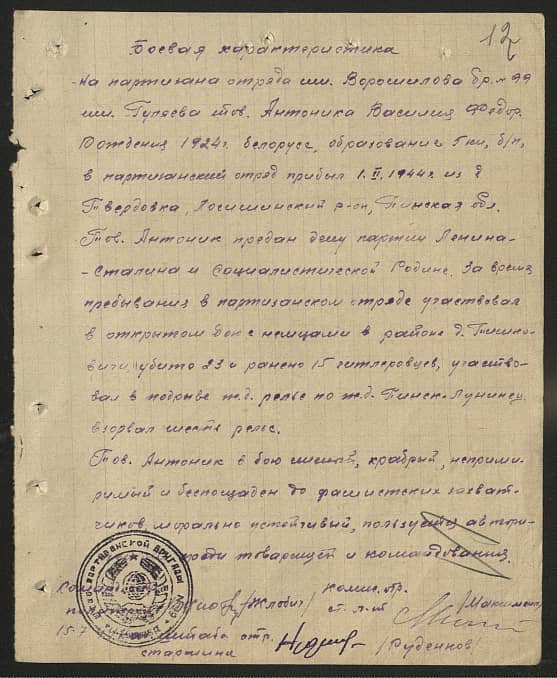 12
Боевая характеристика
На партизана отряда им. Ворошилова бр. № 99
им. Гуляева тов. Антоника Василия Федор.
Рождения 1924 г. белорус, образование 5 кл, б/п,
в партизанский отряд прибыл 1.II.1944 г. из д
Твердовка, Лосишинский р-он, Пинская обл.
Тов. Антоник предан делу партии Ленина-
-Сталина и социалистической Родине. За время
пребывания в партизанском отряде участвовал
в открытом бою с немцами в районе д. Тишко-
вичи, убито 23 и ранено 15 гитлеровцев, участво-
вал в подрыве ж.д. рельс по ж.д. Пинск-Лунинец
взорвал шесть рельс.
Тов. Антоник в бою смелый, храбрый, неприми-
римый и беспощаден до фашистских захват-
чиков, морально устойчивый, пользуется автори-
товарищей и командования.
комис. отр.
ст. л-т
штаба отр.
старшина /Руденков/